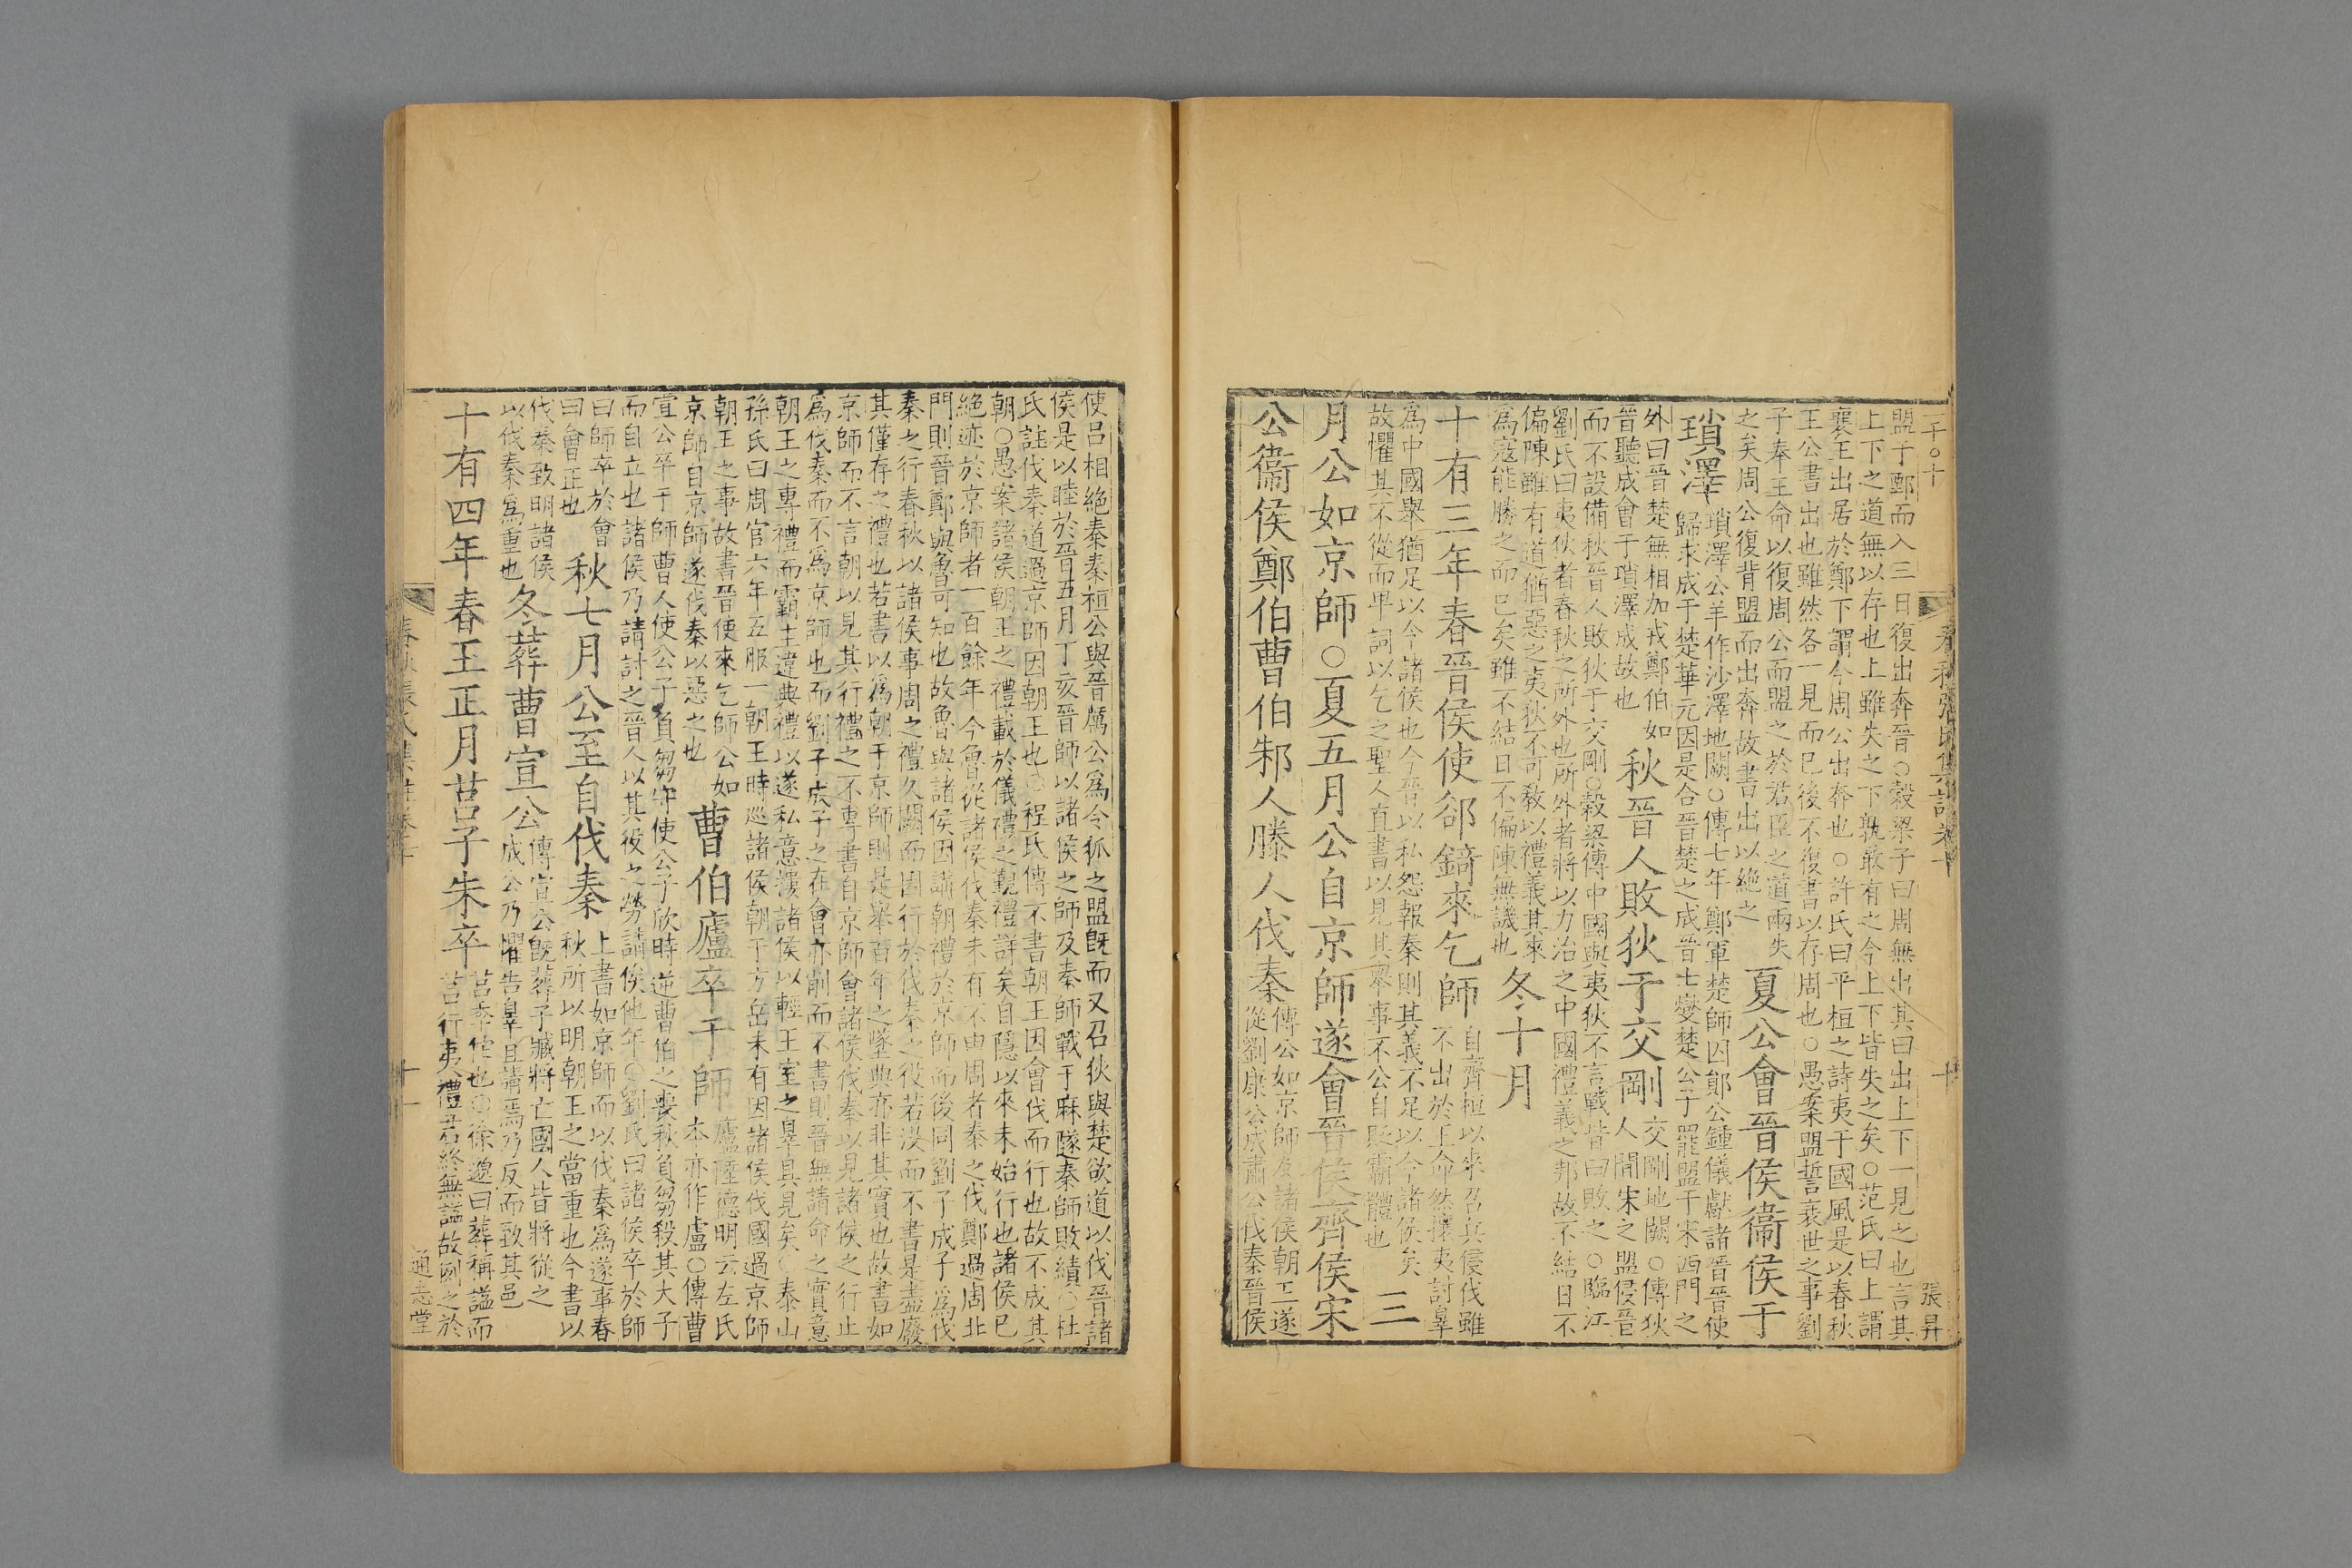 春秋張氏集註卷十
十
張昇
盟于鄄而入三日復出奔晉○穀梁子曰周無出其曰出上下一見之也言其
上下之道無以存也上雖失之下孰敢有之今上下皆失之矣○范氏曰上謂
襄王出居於鄭下謂今周公出奔也○許氏曰平桓之詩夷于國風是以春秋
王公書出也雖然各一見而已後不復書以存周也○愚案盟誓衰世之事劉
子奉王命以復周公而盟之於君臣之道兩失
之矣周公復背盟而出奔故書出以絶之
夏公會晉侯衞侯于
瑣澤
瑣澤公羊作沙澤地闕○傳七年鄭軍楚師囚鄖公鍾儀獻諸晉晉使
歸求成于楚華元因是合晉楚之成晉士燮楚公子罷盟于宋西門之
外曰晉楚無相加戎鄭伯如
晉聽成會于瑣澤成故也
秋晉人敗狄于交剛
交剛地闕○傳狄
人閒宋之盟侵晉
而不設備秋晉人敗狄于交剛○穀梁傳中國與夷狄不言戰皆曰敗之○臨江
劉氏曰夷狄者春秋之所外也所外者將以力治之中國禮義之邦故不結日不
偏陳雖有道猶惡之夷狄不可敎以禮義其來
爲寇能勝之而已矣雖不結日不偏陳無譏也
冬十月
十有三年春晉侯使郤錡來乞師
自齊桓以來召兵侵伐雖
不出於王命然攘夷討辠
爲中國舉猶足以令諸侯也今晉以私怨報秦則其義不足以令諸侯矣
故懼其不從而卑詞以乞之聖人直書以見其舉事不公自貶霸體也
三
月公如京師○夏五月公自京師遂會晉侯齊侯宋
公衞侯鄭伯曹伯邾人滕人伐秦
傳公如京師及諸侯朝王遂
從劉康公成肅公伐秦晉侯
使呂相絕秦秦桓公與晉厲公爲令狐之盟旣而又召狄與楚欲道以伐晉諸
侯是以睦於晉五月丁亥晉師以諸侯之師及秦師戰于麻隧秦師敗績○杜
氏註伐秦道過京師因朝王也○程氏傳不書朝王因會伐而行也故不成其
朝○愚案諸侯朝王之禮載於儀禮之覲禮詳矣自隱以來未始行也諸侯已
絕迹於京師者一百餘年今魯從諸侯伐秦未有不由周者秦之伐鄭過周北
門則晉鄭與魯可知也故魯與諸侯因講朝禮於京師而後同劉子成子爲伐
秦之行春秋以諸侯事周之禮久闕而因行於伐秦之役若沒而不書是盡廢
其僅存之禮也若書以爲朝于京師則是舉百年之墜典亦非其實也故書如
京師而不言朝以見其行禮之不專書自京師會諸侯伐秦以見諸侯之行止
爲伐秦而不爲京師也而劉子成子之在會亦削而不書則晉無請命之實意
朝王之專禮而霸主違典禮以遂私意摟諸侯以輕王室之辠具見矣○泰山
孫氏曰周官六年五服一朝王時巡諸侯朝于方岳未有因諸侯伐國過京師
朝王之事故書晉使來乞師公如
京師自京師遂伐秦以惡之也
曹伯廬卒于師
廬陸德明云左氏
本亦作盧○傳曹
宣公卒于師曹人使公子負芻守使公子欣時逆曹伯之喪秋負芻殺其大子
而自立也諸侯乃請討之晉人以其役之勞請俟他年○劉氏曰諸侯卒於師
曰師卒於會
曰會正也
秋七月公至自伐秦
上書如京師而以伐秦爲遂事春
秋所以明朝王之當重也今書以
伐秦致明諸侯
以伐秦爲重也
冬葬曹宣公
傳宣公旣葬子臧將亡國人皆將從之
成公乃懼告辠且請焉乃反而致其邑
十有四年春王正月莒子朱卒
莒季佗也○徐邈曰葬稱謚而
莒行夷禮君終無謚故例之於
十一
通志堂